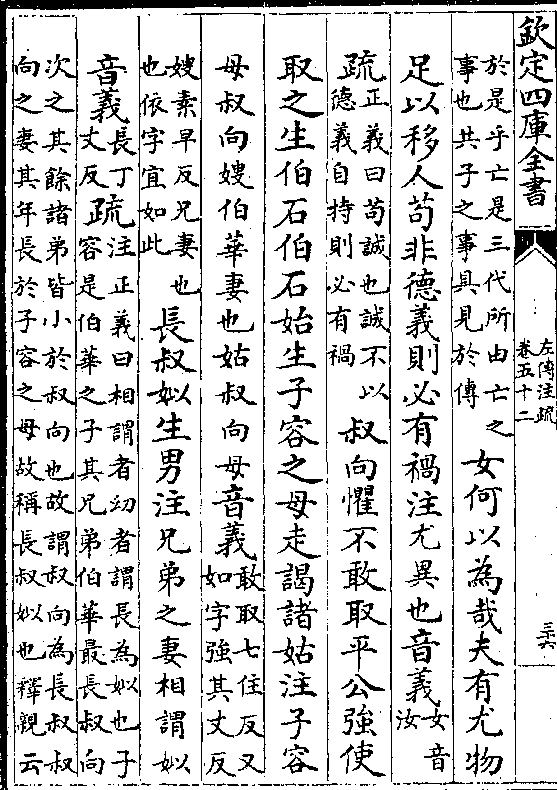 欽定四庫全書
左傳注疏
卷五十二
三十六
於是乎亡是三代所由亡之
事也共子之事具見於傳
女何以為哉夫有尤物
足以移人苟非德義則必有禍注尤異也音義
女音
汝
疏
正義曰苟誠也誠不以
德義自持則必有禍
叔向懼不敢取平公強使
取之生伯石伯石始生子容之母走謁諸姑注子容
母叔向嫂伯華妻也姑叔向母音義
敢取七住反又
如字強其丈反
嫂素早反兄妻也
也依字宜如此
長叔姒生男注兄弟之妻相謂姒
音義
長丁
丈反
疏
注正義曰相謂者幼者謂長為姒也子
容是伯華之子其兄弟伯華最長叔向
次之其餘諸弟皆小於叔向也故謂叔向為長叔叔
向之妻其年長於子容之母故稱長叔姒也釋親云